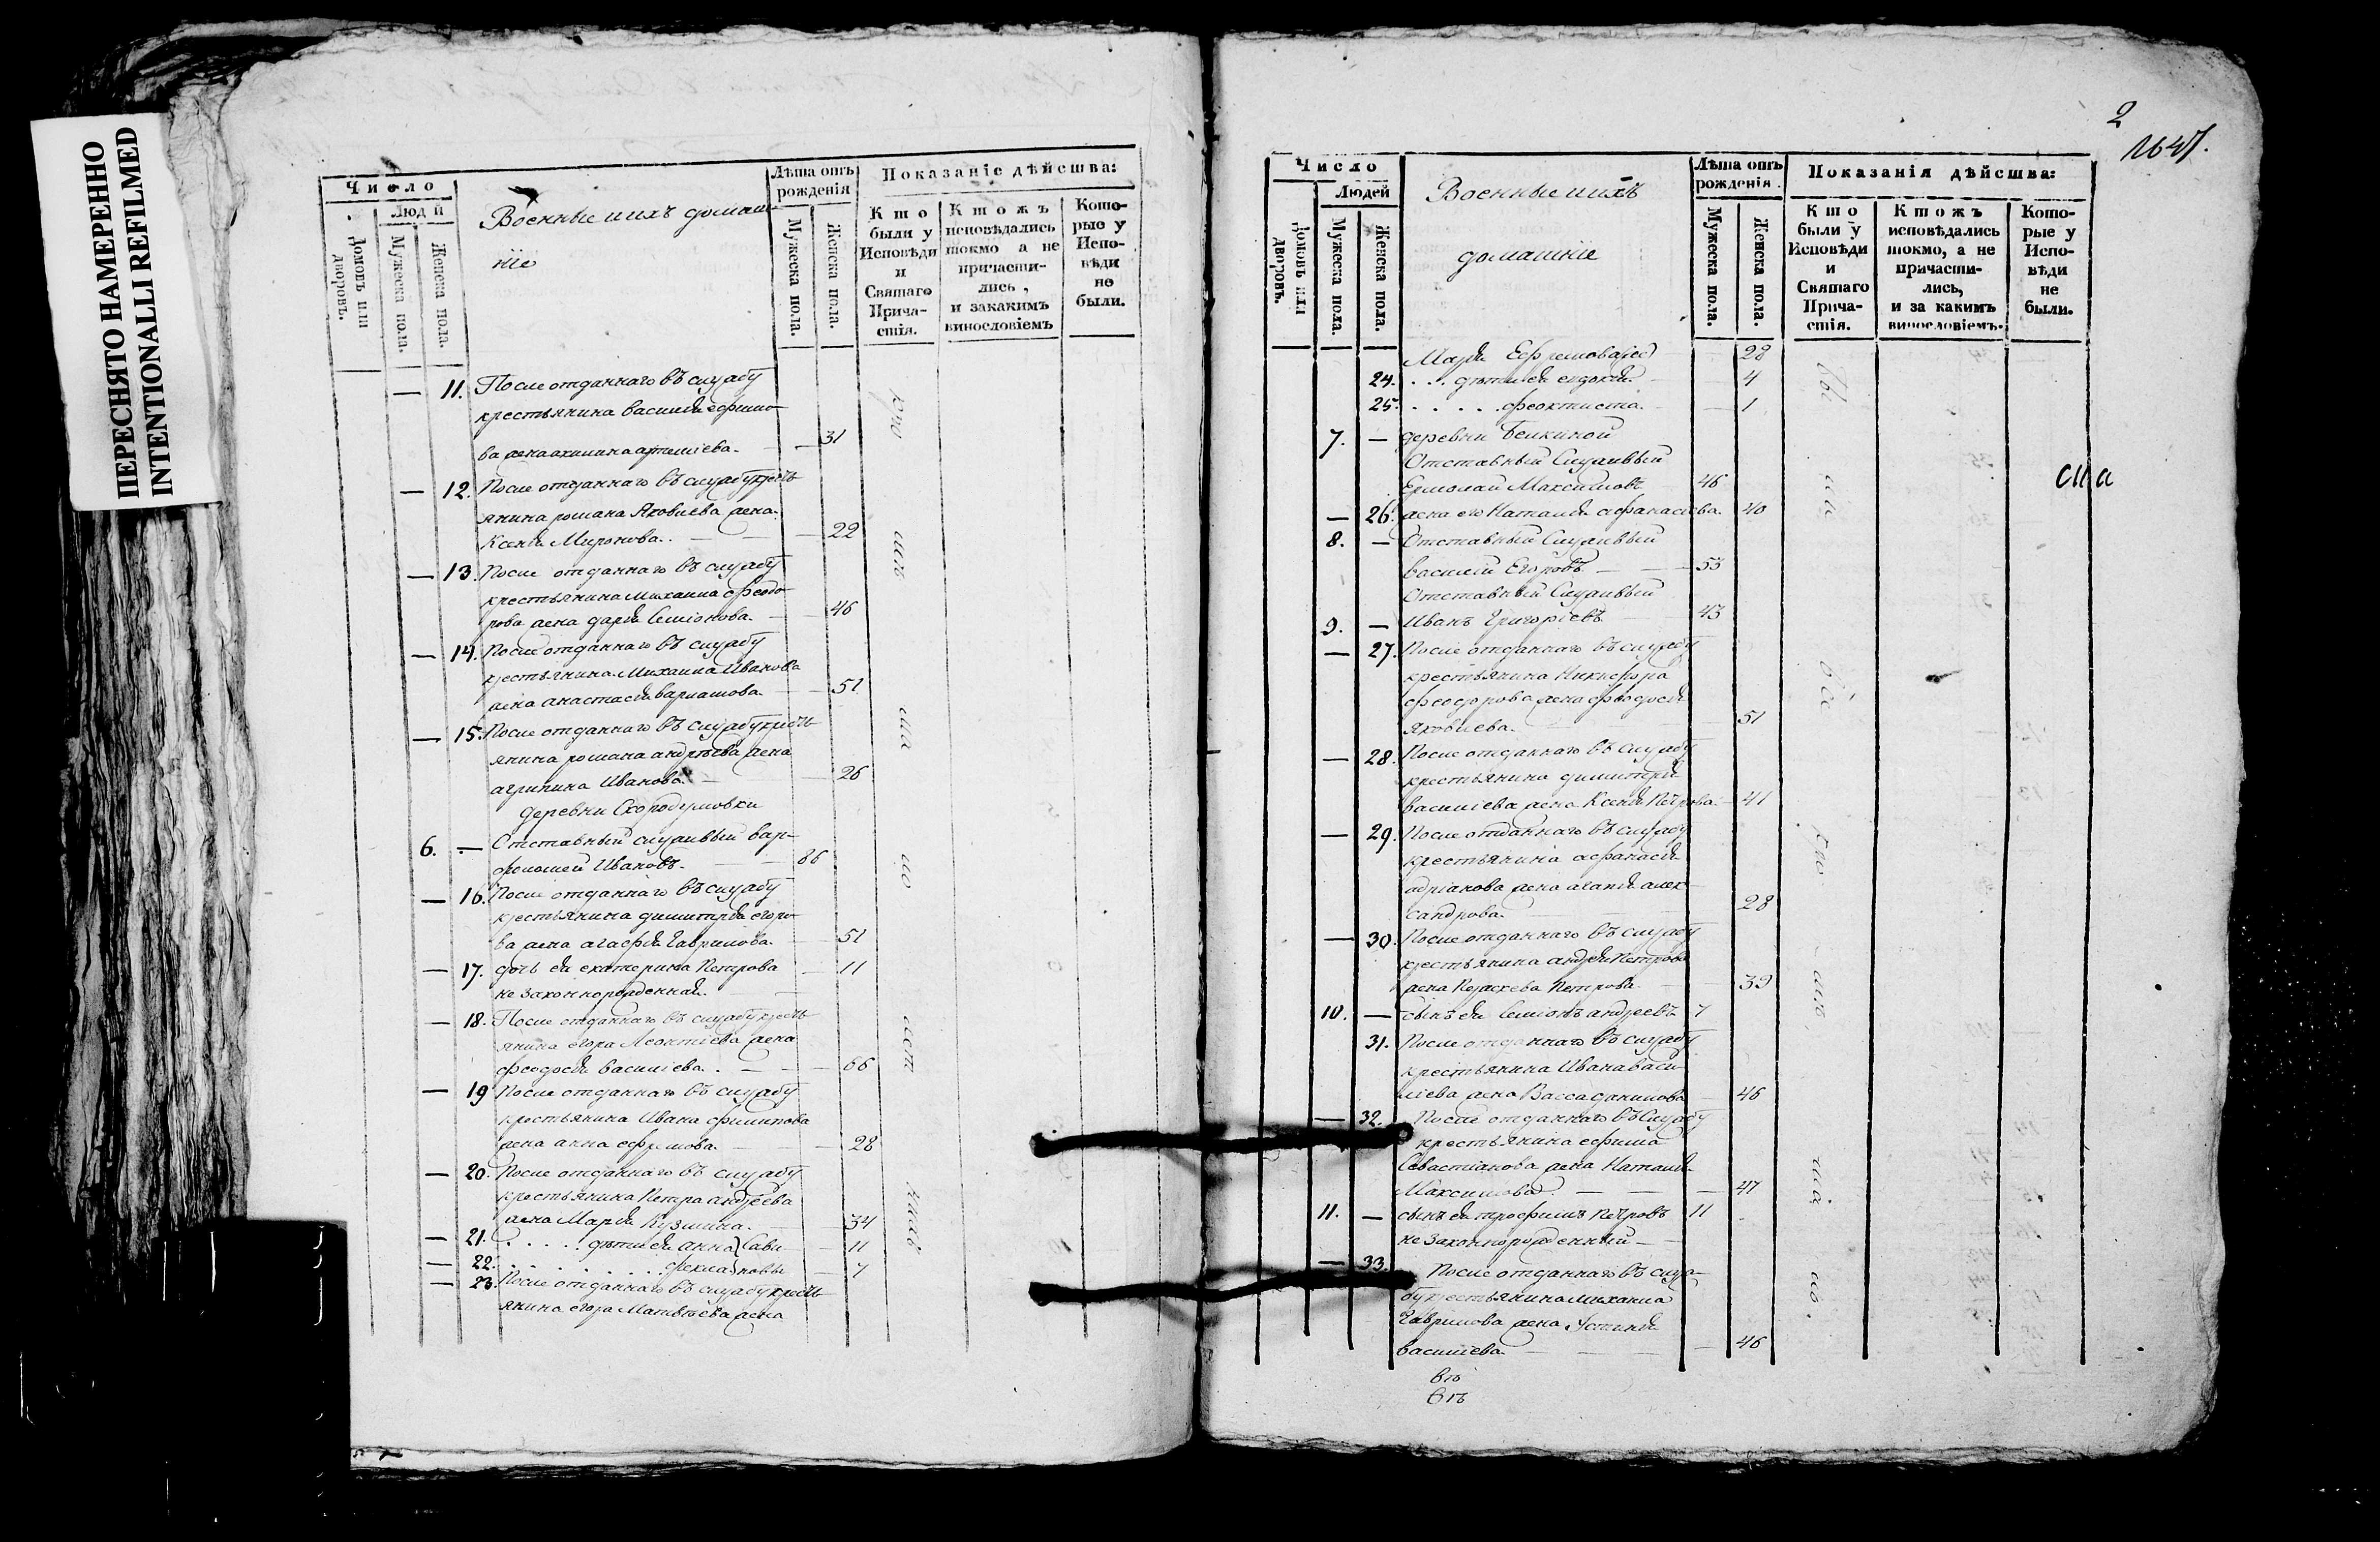 ПЕРЕСНЯТО НАМЕРЕННО
INTENTIONALLI REFILMED
Число
Люд й
Домовъ или дворовъ.
Мужеска пола.
Женска пола.
Военные и ихъ домаш-
ніе
Лѣта отъ рожденія
Мужеска пола.
Женска пола.
Показаніе дѣйства:
Кто были у Исповѣди и Святаго Прича-стія.
Кто жъ исповѣдались токмо а не причасти-лись, и закакимъ винословіемъ
Кото-рые у Испо-вѣди не были.
— 11. После отданнаго въ службу
крестьянина василія ефимо-
ва жена акилина артемiева. — 31
— 12. После отданнаго въ службу кресть
янина романа Яковлева жена
Ксенія Миронова. — — — 22
— 13. После отданнаго въ службу
крестьянина михаила феодо-
рова жена дарія Семіонова. — 46
— 14. После отданнаго въ службу
крестьянина Михаила Иванова
жена анастасія варламова. — 51
— 15. После отданнаго въ службу кресть
янина романа андрѣева жена
агрипина Иванова. — — 26
деревни
6. — Отставный служивый вар-
фоломей Ивановъ. — — 86
— 16. После отданнаго въ службу
крестьянина димитрія егоро-
ва жена агафія Гаврилова. — 51
— 17. дочь ея екатерина Петрова — 11
не законнорожденная. —
— 18. После отданнаго въ службу кресть
янина егора Леонтіева жена
феодосія василіева. — — 66
— 19 После отданнаго въ службу
крестьянина Ивана филипова
жена анна ефремова. — 28
— 20. После отданнаго въ службу
крестьянина Петра андреева
жена Марія Кузмина. — 34
— 21. . . . . . дѣти ея анна } Сави- — 11
— 22. . . . . . . . . фекла } новы — 7
— 23. После отданнаго въ службу кресть
янина егора Матвѣева жена
2
1647.
Число
Людей
Домовъ или дворовъ.
Мужеска пола.
Женска пола.
Военные и ихъ
домашніе
Лѣта отъ рожденія.
Мужеска пола.
Женска пола.
Показанія дѣйства:
Кто были у Исповѣди и Святаго Прича-стія.
Кто жъ исповѣдались токмо, а не причасти-лись, и за какимъ винословіемъ.
Кото-рые у Испо-вѣди не были.
Марія Ефремова 28
24. . . . дѣти ея евдокія. — 4
25. . . . . . феоктиста. — 1
7. — деревни Белкиной
Отставный Служивый
Ермолай Максимовъ 46
— 26. жена его Наталія афанасіева. 40
8. — Отставный Служивый
василей Егоровъ — — 53
Отставный Служивый
9. — Иванъ Григоріевъ 43
— 27. После отданнаго въ службу
крестьянина Никифора
феодорова жена феодосія
Яковлева. — 51
— 28. После отданнаго въ службу
крестьянина димитрія
василіева жена Ксенія Петрова. — 41
— 29. После отданнаго въ службу
крестьянина афанасія
адріанова жена агапія алек-
сандрова. 28
— 30. После отданнаго въ службу
крестьянина андрея Петрова
жена Петрова. — 39
10. — сынъ ея Семіонъ андреевъ 7
31. После отданнаго въ службу
крестьянина Ивана васи-
ліева жена Васса данилова — 46
— 32. После отданнаго въ Службу
крестьянина ефима
Севастіанова жена Наталія
Максимова. — — — 47
11. — сынъ ея трофимъ Петровъ 11
не законнорожденный —
— 33. После отданнаго въ служ-
бу крестьянина михаила
Гаврилова жена Устинія
василіева. — — — 46